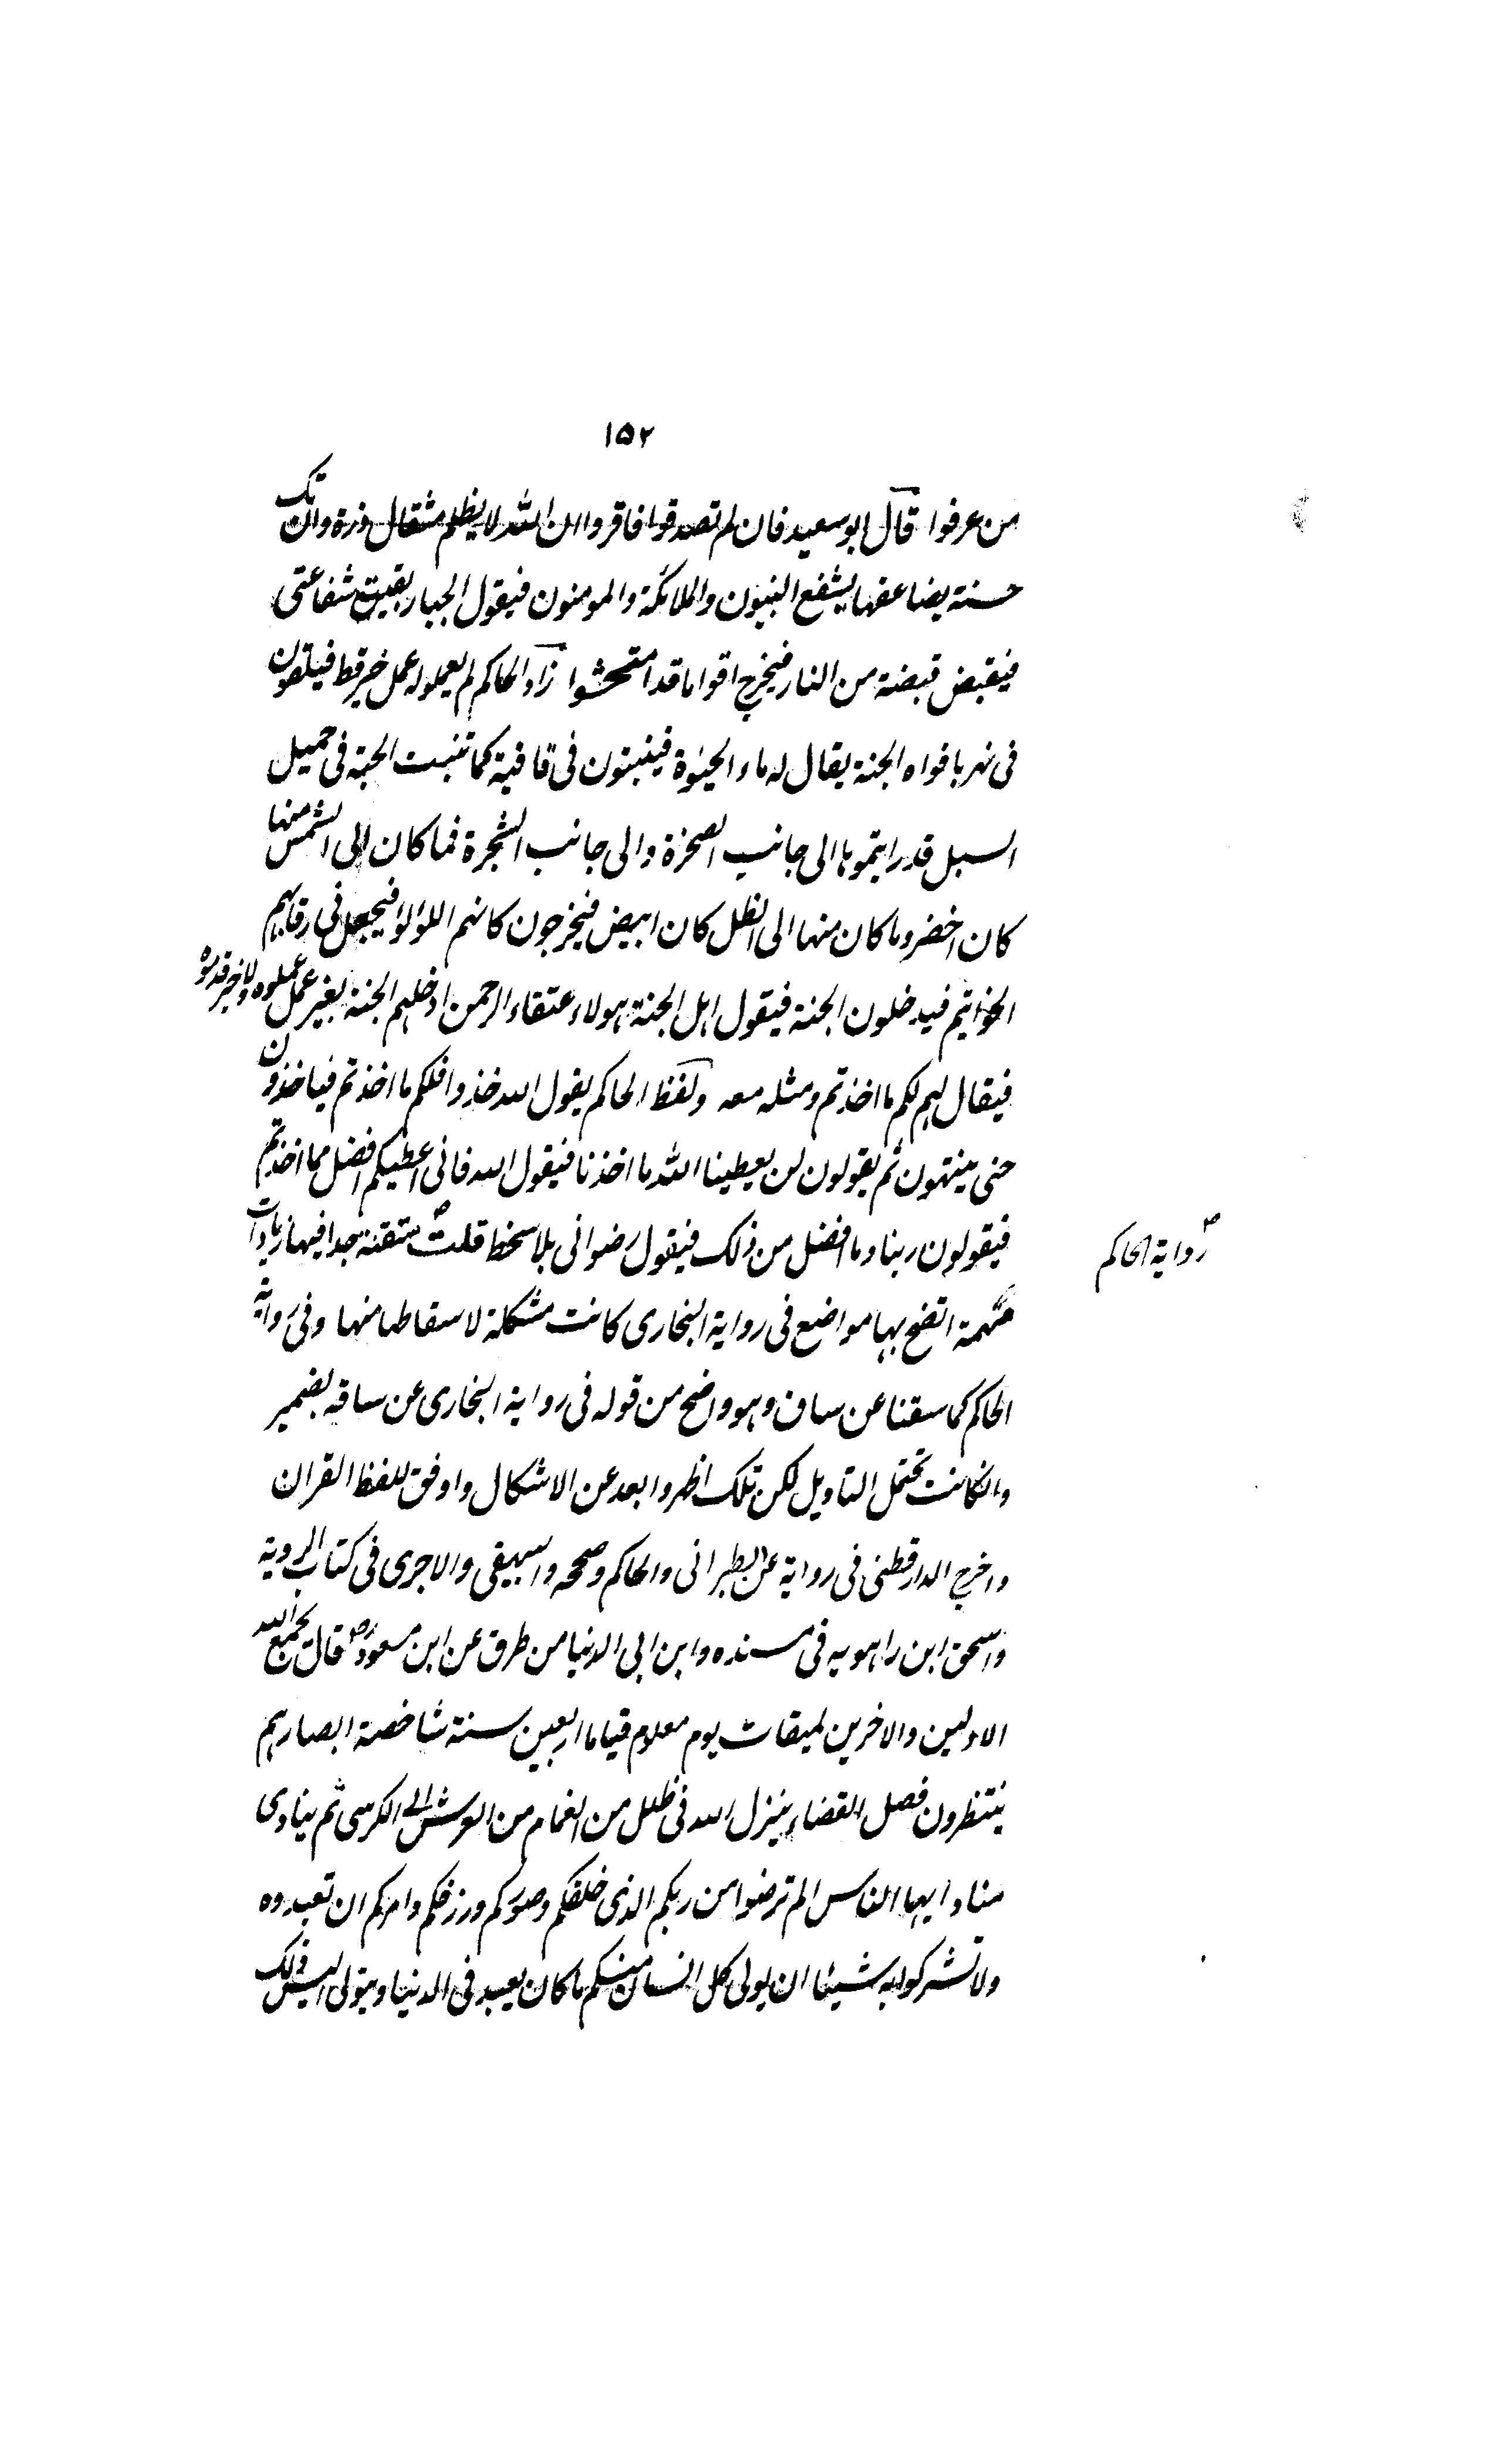 ١٥٢
من عرفوا قال ابو سعيد فان لم تصدقوا فاقروا ان الله لا يظلم مثقال ذرة وان تك
حسنة يضاعفها يشفع النبيون والملائكة والمومنون فيقول الجبار بقيت شفاعتى
فيقبض قبضة من النار فيخرج اقواما قد امتحشوا زاد الحاكم لم يعملوا له عمل خير قط فيلقون
فى نهر بافواه الجنة يقال له ماء الحيٰوة فينبتون فى قافية كما تنبت الحبة فى حميل
السيل قد رايتموها الى جانب الصخرة والى جانب الشجرة فما كان الى الشمس منها
كان اخضر وما كان منها الى الظل كان ابيض فيخرجون كانهم اللؤلؤ فيجعل فى رقابهم
الخواتيم فيدخلون الجنة فيقول اهل الجنة هولاء عتقاء الرحمن ادخلهم الجنة بغير عمل عملوه ولا خير قدموه
فيقال لهم لكم ما اخذتم ومثله معه ولفظ الحاكم يقول الله خذوا فلكم ما اخذتم فياخذون
حتى ينتهون ثم يقولون لن يعطينا الله ما اخذنا فيقول الله فانى اعطيكم افضل مما اخذتم
فيقولون ربنا وما افضل من ذلك فيقول رضوانى بلا سخط قلت متقنة جدا فيها زيادات
رواية الحاكم
مهمة اتضح بها مواضع فى رواية البخارى كانت مشكلة لاسقاطها منها وفى رواية
الحاكم كما سقنا عن ساق وهو واضح من قوله فى رواية البخارى عن ساقه بضمير
وانكانت تحتمل التاويل لكن تلك اظهر وابعد عن الاشكال واوفق للفظ القران
واخرج الدارقطنى فى رواية عن الطبرانى والحاكم وصححه والبيهقى والاجرى فى كتاب الروية
واسحق ابن راهويه فى مسنده وابن ابى الدنيا من طرق عن ابن مسعود رض قال يجمع الله
الاولين والاخرين لميقات يوم معلوم قياما اربعين سنة شاخصة ابصارهم
ينتظرون فصل القضاء ينزل الله فى ظلل من الغمام من العرش الى الكرسى ثم ينادى
مناد ايها الناس الم ترضوا من ربكم الذى خلقكم وصوركم ورزقكم وامركم ان تعبدوه
ولا تشركوا به شيئا ان يولى كل انسان منكم ما كان يعبد فى الدنيا ويتولى اليس ذلك